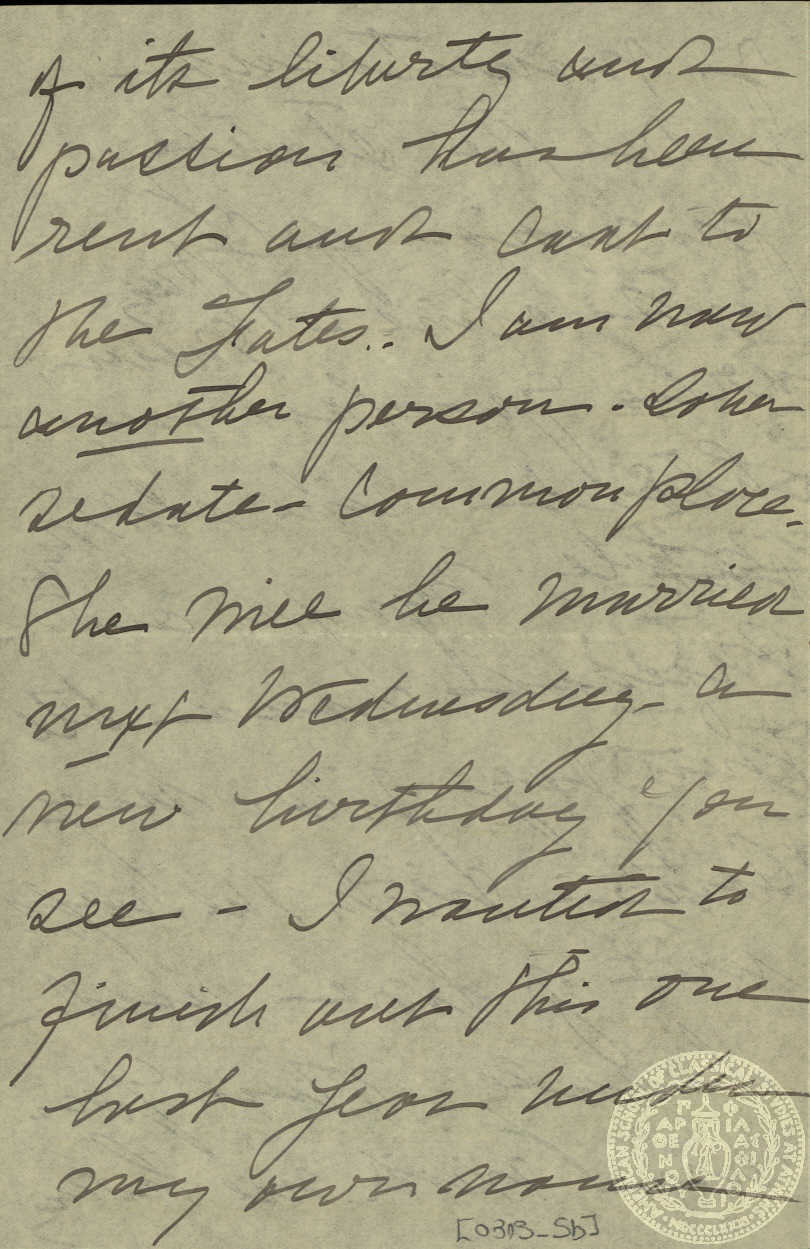 of its liberty and
passion has been
rent and cast to
the Fates.. I am now
another person. Sober
sedate - Commonplace.
She will be married
next Wednesday - a
new birthday you
see - I wanted to
finish out this one
last year under
my own name
[0313_Sb]
AMERICAN SCHOOL OF CLASSICAL STUDIES AT ATHENS
MDCCCLXXXI